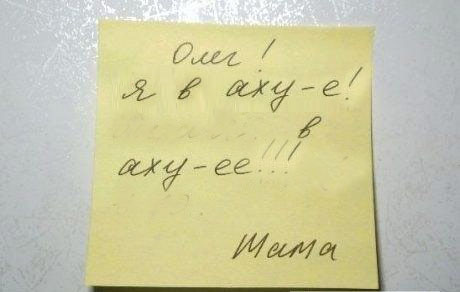 Олег!
Я в аху-е!
в
аху-ее!!!
Мама